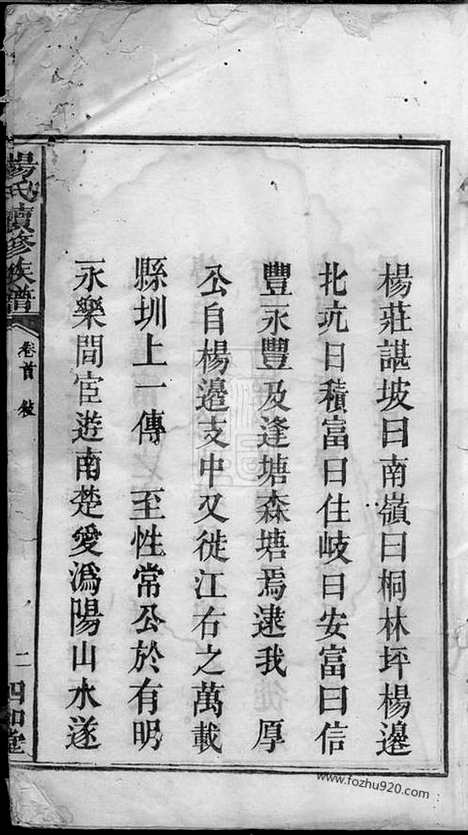 楊莊諶坡曰南嶺曰桐林坪楊邊
北坑曰積富曰住岐曰安富曰信
豐永豐及逢塘森塘焉逮我 厚
公自楊邉支中又徙江右之萬載
縣圳上一傳 至性常公於有明
永樂間宦遊南楚愛潙陽山水遂
楊氏續修族譜
卷首
二
四知堂
www.fozhu920.com